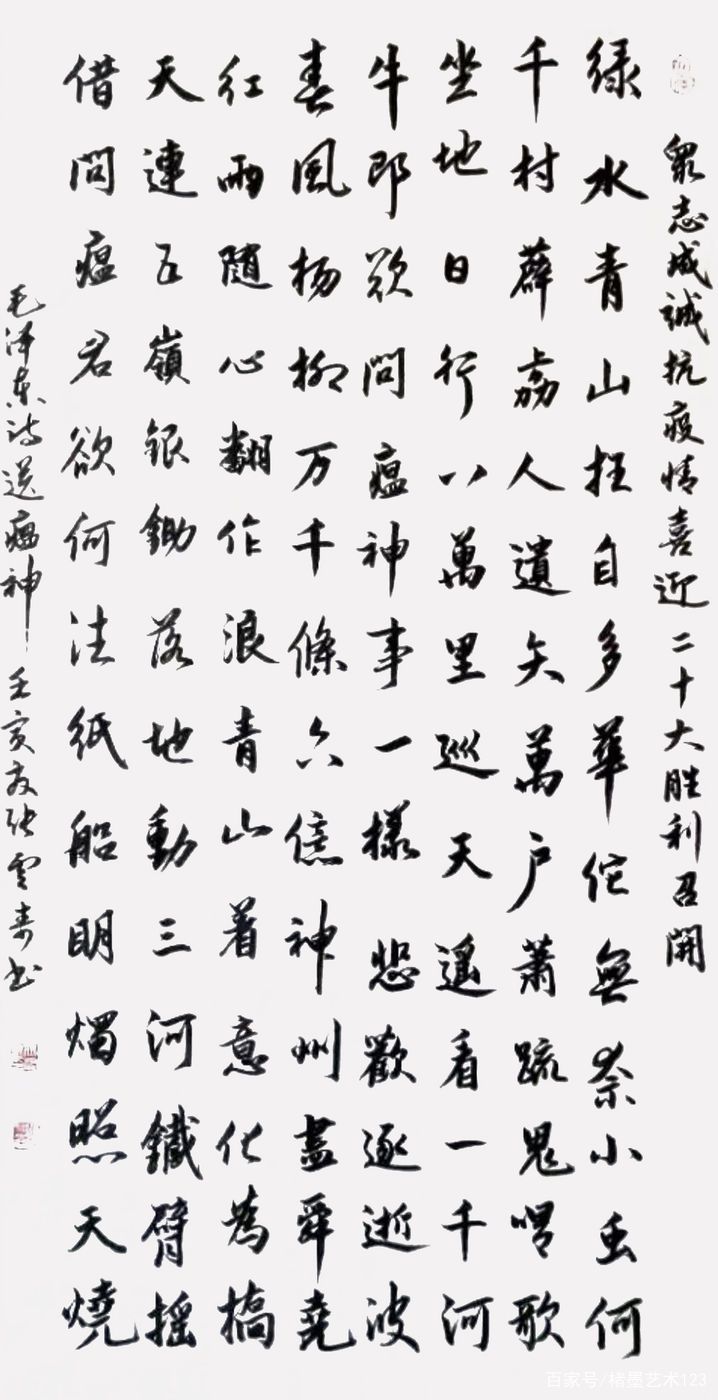 眾志成誠抗疫情喜迎二十大胜利召開
绿水青山枉自多華佗無奈小虫何
千村薜荔人遺矢萬户蕭疏鬼唱歌
坐地日行八萬里巡天遥看一千河
牛郎欲問瘟神事一樣悲歡逐逝波
春風杨柳万千條六億神州盡舜堯
红雨随心翻作浪青山着意化為橋
天連五嶺银鋤落地動三河鐵臂摇
借問瘟君欲何往纸船明燭照天燒
毛泽东诗送瘟神 壬寅 张雲 书
百家号/楮墨艺术123